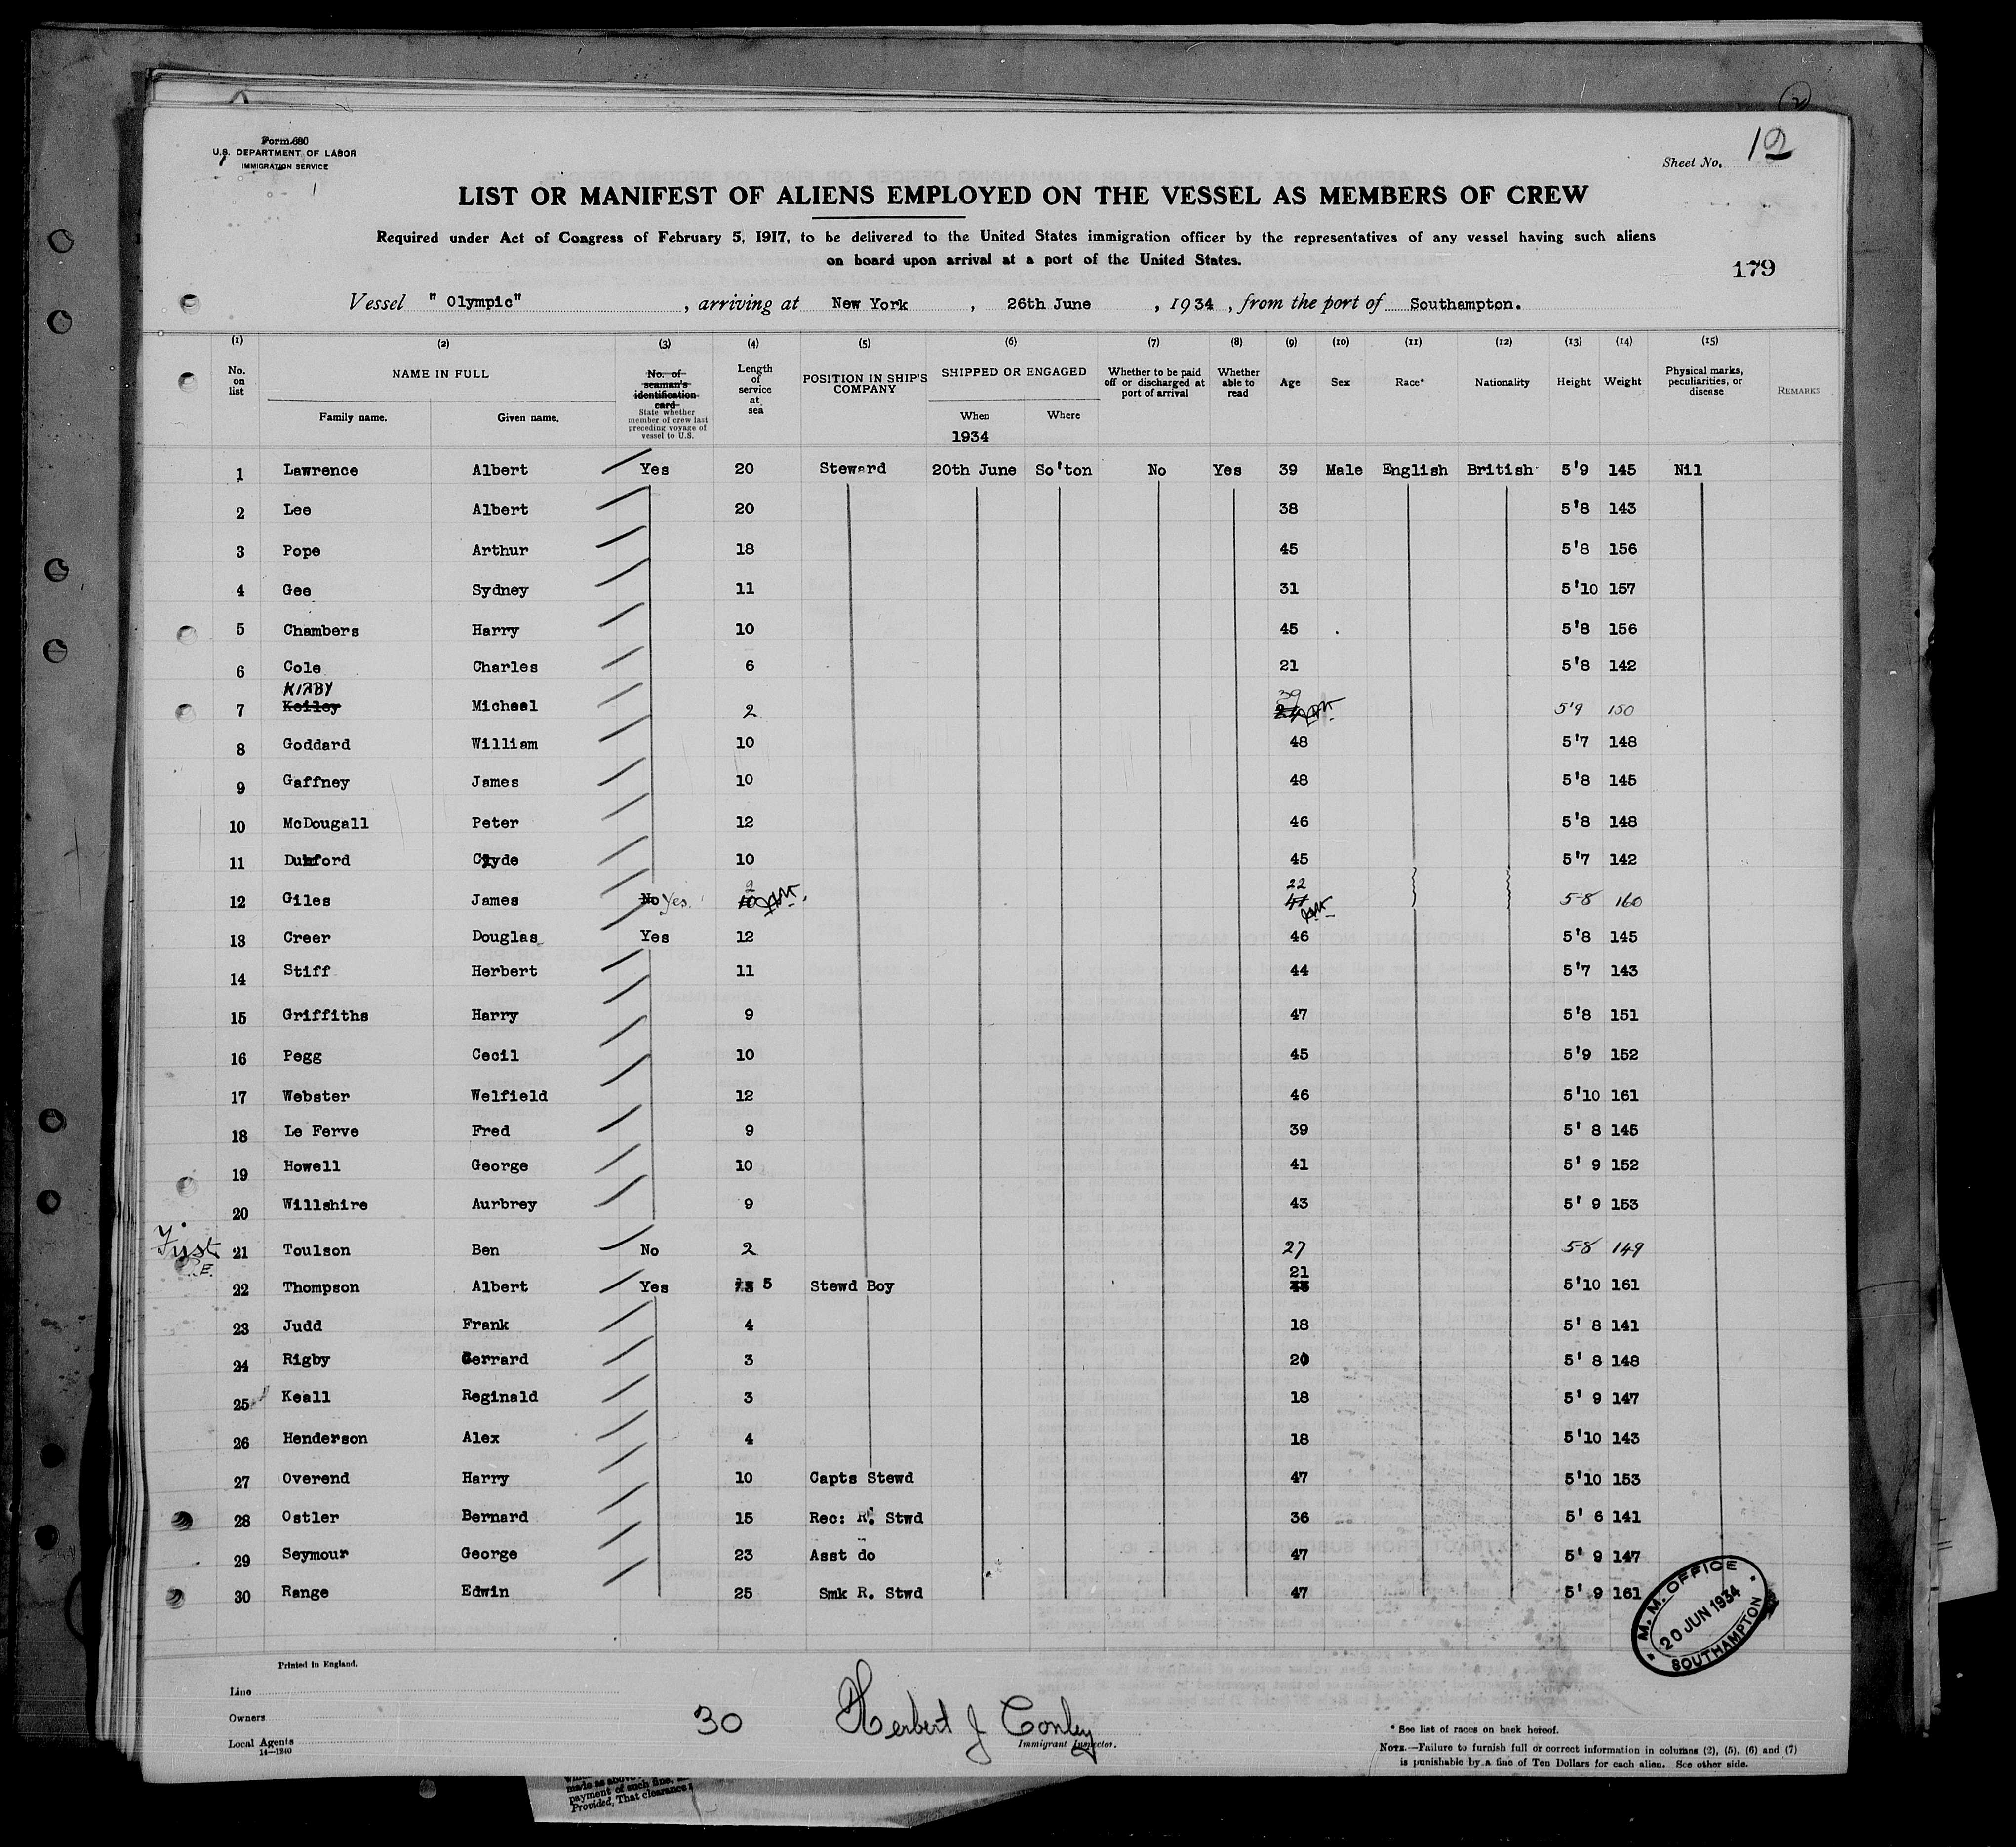 Form 680
U.S. DEPARTMENT OF LABOR
IMMIGRATION SERVICE
Sheet No. 12
LIST OR MANIFEST OF ALIENS EMPLOYED ON THE VESSEL AS MEMBERS OF CREW
Required under Act of Congress of February 5, 1917, to be delivered to the United States immigration officer by the representatives of any vessel having such aliens
on board upon arrival at a port of the United States.
179
Vessel "Olympic", arriving at New York, 26th June, 1934, from the port of Southampton.
(1) (2) (3) (4) (5) (6) (7) (8) (9) (10) (11) (12) (13) (14) (15)
No. on list
NAME IN FULL
Family name. Given name.
No. of seaman's identification card
State whether member of crew last preceding voyage of vessel to U.S.
Length of service at sea
POSITION IN SHIP'S COMPANY
SHIPPED OR ENGAGED
When Where
1934
Whether to be paid off or discharged at port of arrival
Whether able to read
Age Sex Race* Nationality Height Weight
Physical marks, peculiarities, or disease
REMARKS
1 Lawrence Albert Yes 20 Steward 20th June So'ton No Yes 39 Male English British 5'9 145 Nil
2 Lee Albert 20 38 5'8 143
3 Pope Arthur 18 45 5'8 156
4 Gee Sydney 11 31 5'10 157
5 Chambers Harry 10 45 5'8 156
6 Cole Charles 6 21 5'8 142
KIRBY
7 Keiley Michael 2 39 5'9 150
8 Goddard William 10 48 5'7 148
9 Gaffney James 10 48 5'8 145
10 McDougall Peter 12 46 5'8 148
11 Clyde 10 45 5'7 142
12 Giles James No Yes. 2 10 22 5-8 160
13 Creer Douglas Yes 12 46 5'8 145
14 Stiff Herbert 11 44 5'7 143
15 Griffiths Harry 9 47 5'8 151
16 Pegg Cecil 10 45 5'9 152
17 Webster Welfield 12 46 5'10 161
18 Le Ferve Fred 9 39 5' 8 145
19 Howell George 10 41 5' 9 152
20 Willshire Aurbrey 9 43 5' 9 153
21 Toulson Ben No 2 27 5-8 149
22 Thompson Albert Yes 5 Stewd Boy 21 5'10 161
23 Judd Frank 4 18 5' 8 141
24 Rigby Gerrard 3 20 5' 8 148
25 Keall Reginald 3 18 5' 9 147
26 Henderson Alex 4 18 5'10 143
27 Overend Harry 10 Capts Stewd 47 5'10 153
28 Ostler Bernard 15 Rec: R. Stwd 36 5' 6 141
29 Seymour George 23 Asst do 47 5' 9 147
30 Range Edwin 25 Smk R. Stwd 47 5' 9 161
M.M. OFFICE
20 JUN 1934
SOUTHAMPTON
Printed in England.
Line
Owners
Local Agents
14—1240
30
Herbert J Conley
Immigrant Inspector.
* See list of races on back hereof.
NOTE.—Failure to furnish full or correct information in columns (2), (5), (6) and (7)
is punishable by a fine of Ten Dollars for each alien. See other side.
made as above
payment of such fine,
Provided, That clearance